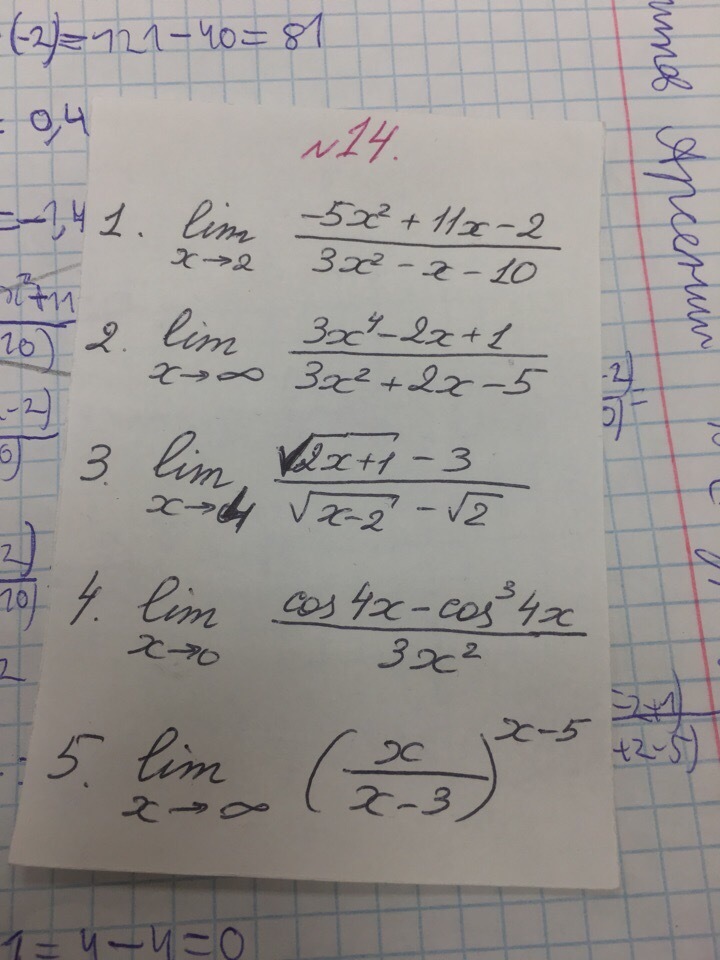 (-2)=121-40=81
= 0,4
№14.
=-1,4
1. lim x→2 (-5x²+11x-2)/(3x²-x-10)
2. lim x→∞ (3x⁴-2x+1)/(3x²+2x-5)
3. lim x→4 (√(2x+1) - 3)/(√(x-2) - √2)
4. lim x→0 (cos 4x - cos³4x)/(3x²)
5. lim x→∞ (x/(x-3))^(x-5)
+2-5)
1=4-4=0